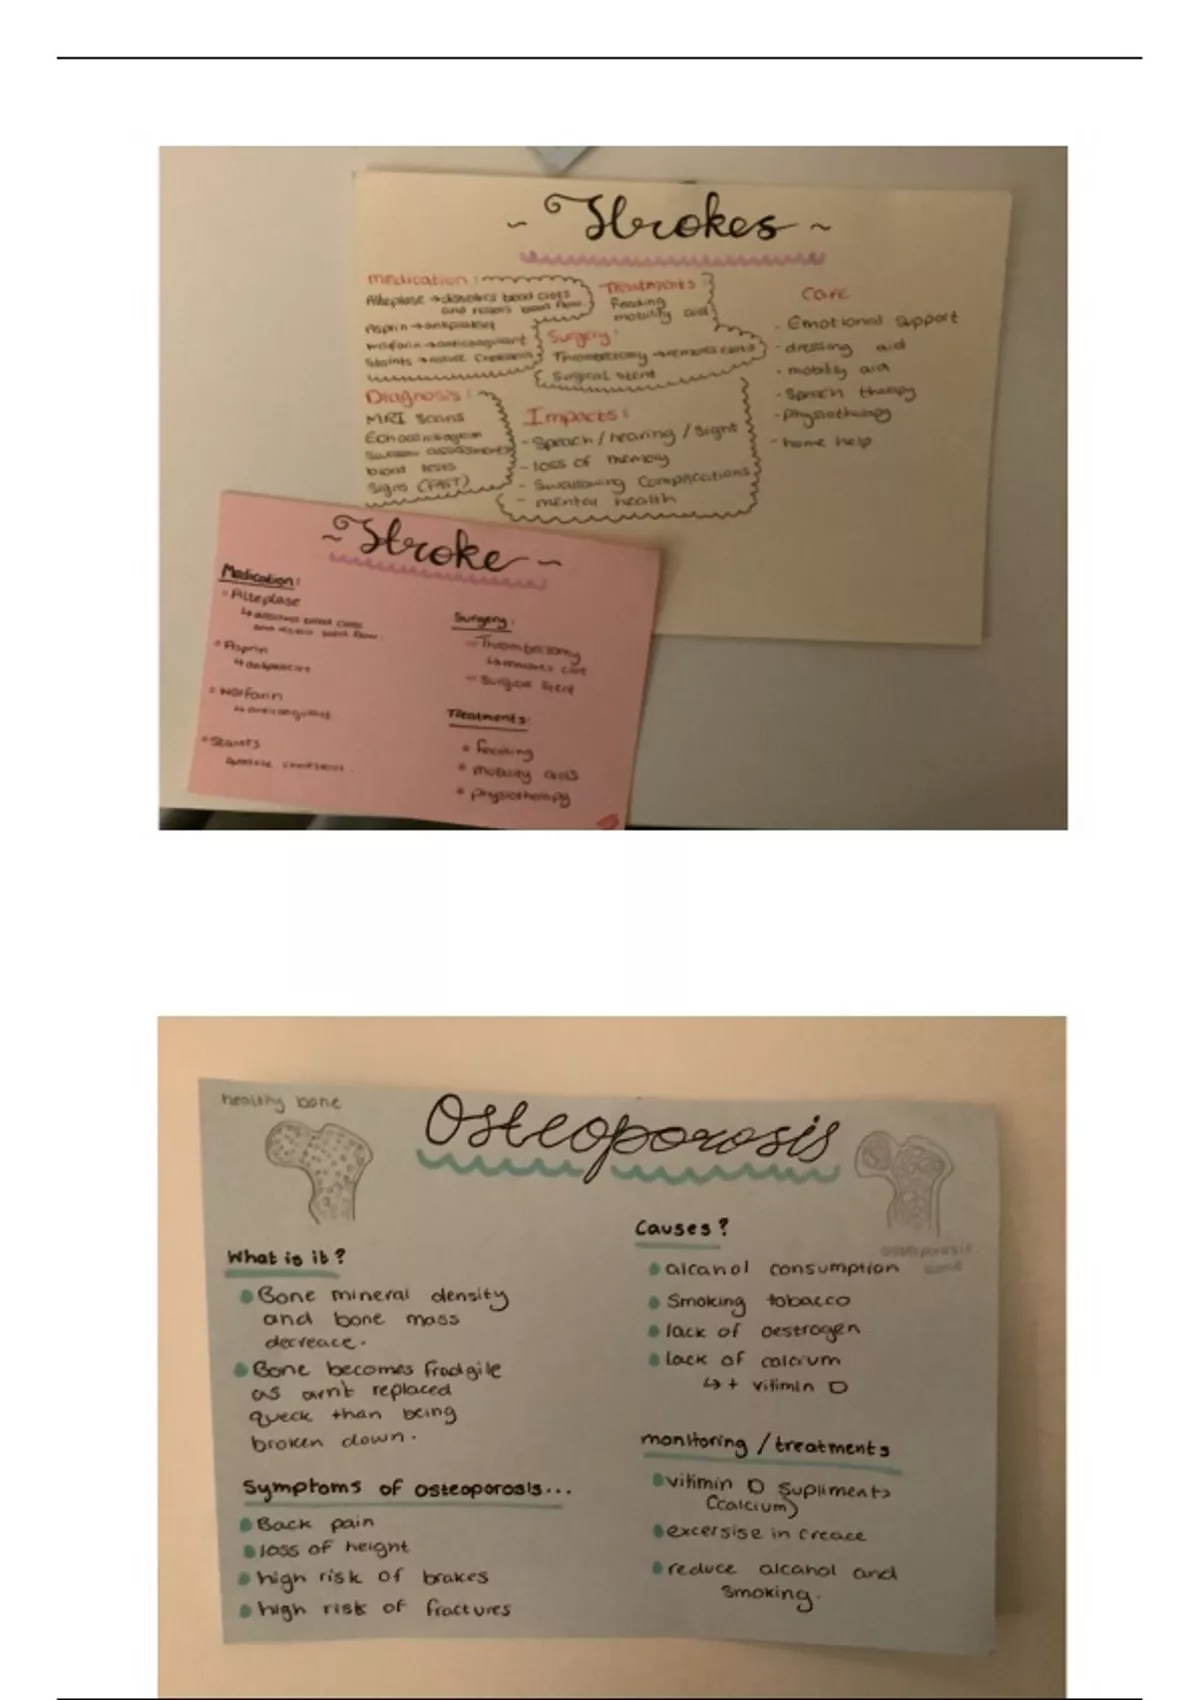 ~ Strokes ~
medication:
Alteplase → dissolves blood clots
and restors blood flow.
Asprin → antiplatelet
Warfarin → anticoagulant
Staints → reduce
Treatments:
Feeding
mobility aid
Surgery:
Thrombectomy → removes clots
Surgical stent
Care
- Emotional support
- dressing aid
- mobility aid
- Speach therapy
- physiotherapy
- home help
Diagnosis:
MRI Scans
Echocardiogram
Swallow assessments
blood tests
Signs (FAST)
Impacts:
- Speach / hearing / Sight
- loss of memory
- Swallowing Complications
- mental health
~ Stroke ~
Medication:
Alteplase
↳ dissolves blood clots
and restors blood flow.
Asprin
↳ antiplatelet
Warfarin
↳ anticoagulant
Staints
Surgery:
- Thrombectomy
↳ removes clot
- Surgical stent
Treatments:
feeding
mobility aids
physiotherapy
healthy bone
Osteoporosis
osteoporosis
bone
What is it?
Bone mineral density
and bone mass
decreace.
Bone becomes fradgile
as arn't replaced
queck than being
broken down.
Symptoms of osteoporosis...
Back pain
loss of height
high risk of brakes
high risk of fractures
Causes?
alcahol consumption
Smoking tobacco
lack of oestrogen
lack of calcium
↳ + vitimin D
monitoring / treatments
vitimin D Supliments
(calcium)
excersise in creace
reduce alcahol and
smoking.